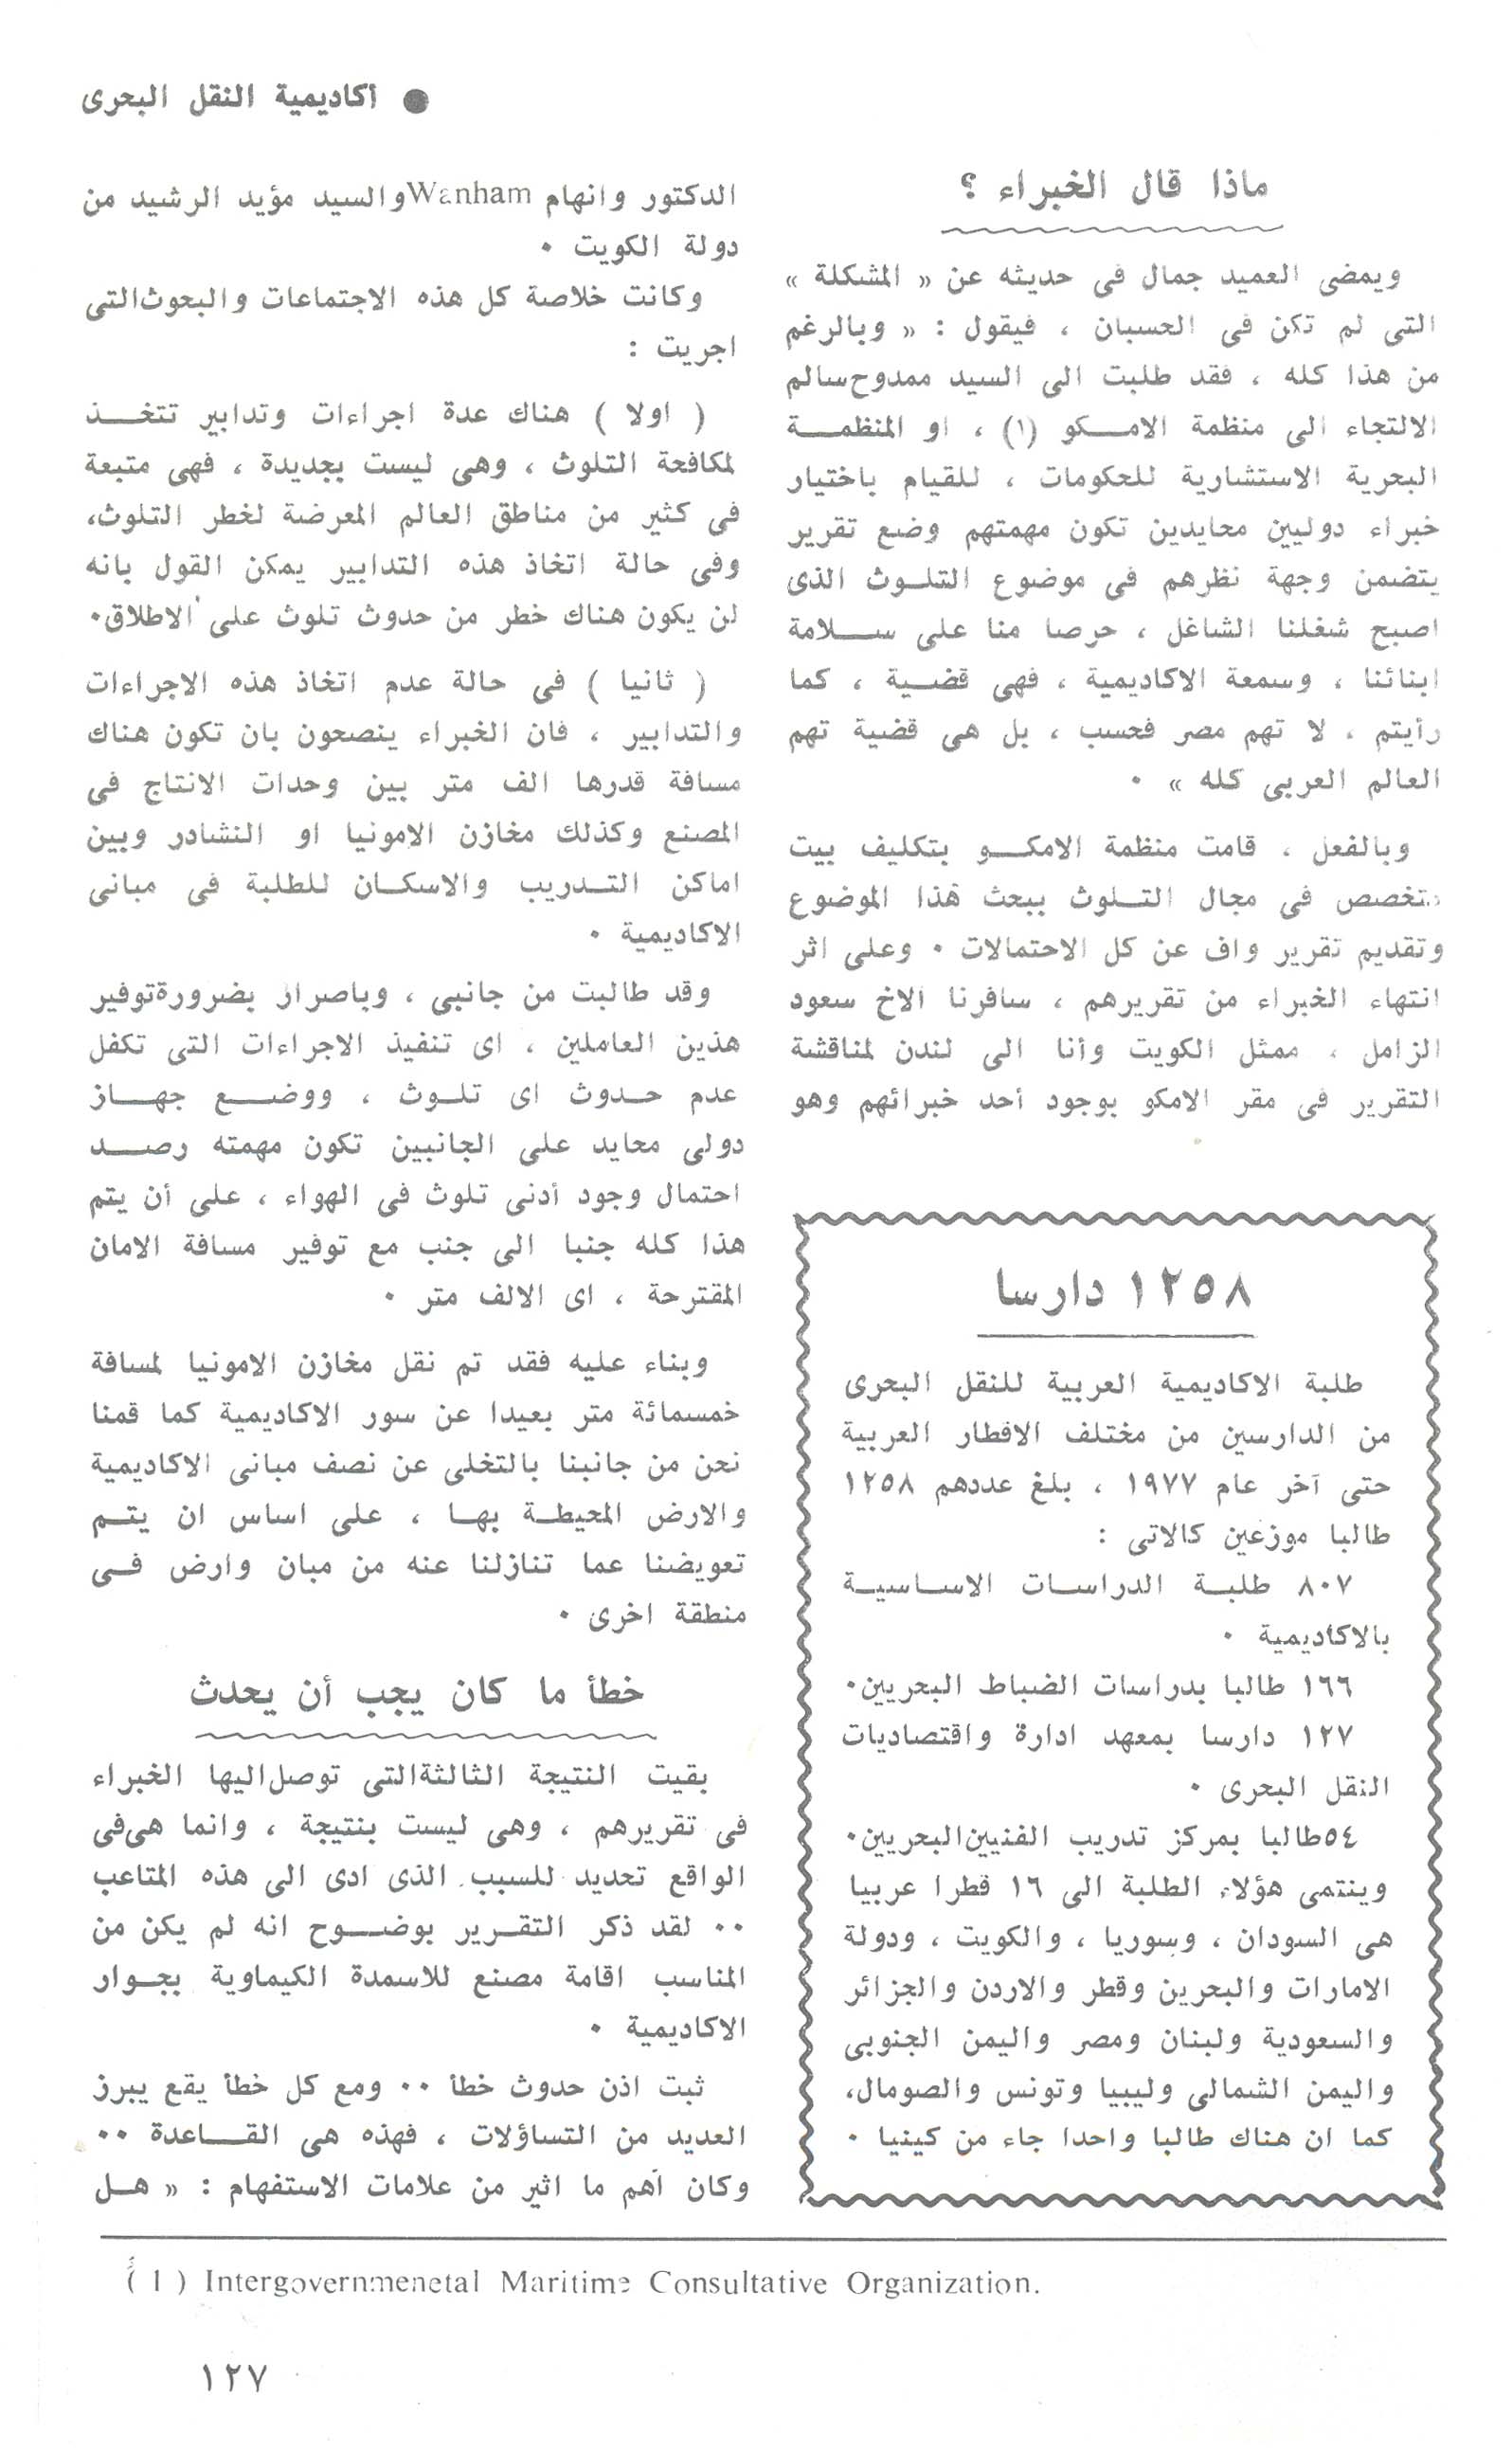 ● أكاديمية النقل البحرى
ماذا قال الخبراء ؟
ويمضى العميد جمال فى حديثه عن « المشكلة »
التى لم تكن فى الحسبان ، فيقول : « وبالرغم
من هذا كله ، فقد طلبت الى السيد ممدوح سالم
الالتجاء الى منظمة الامكو (١) ، او المنظمة
البحرية الاستشارية للحكومات ، للقيام باختيار
خبراء دوليين محايدين تكون مهمتهم وضع تقرير
يتضمن وجهة نظرهم فى موضوع التلوث الذى
اصبح شغلنا الشاغل ، حرصا منا على سلامة
ابنائنا ، وسمعة الاكاديمية ، فهى قضية ، كما
رأيتم ، لا تهم مصر فحسب ، بل هى قضية تهم
العالم العربى كله » ٠
وبالفعل ، قامت منظمة الامكو بتكليف بيت
متخصص فى مجال التلوث ببحث هذا الموضوع
وتقديم تقرير واف عن كل الاحتمالات ٠ وعلى اثر
انتهاء الخبراء من تقريرهم ، سافرنا الاخ سعود
الزامل ، ممثل الكويت وأنا الى لندن لمناقشة
التقرير فى مقر الامكو بوجود أحد خبرائهم وهو
١٢٥٨ دارسا
طلبة الاكاديمية العربية للنقل البحرى
من الدارسين من مختلف الاقطار العربية
حتى آخر عام ١٩٧٧ ، بلغ عددهم ١٢٥٨
طالبا موزعين كالاتى :
٨٠٧ طلبة الدراسات الاساسية
بالاكاديمية ٠
١٦٦ طالبا بدراسات الضباط البحريين٠
١٢٧ دارسا بمعهد ادارة واقتصاديات
النقل البحرى ٠
٥٤ طالبا بمركز تدريب الفنيين البحريين٠
وينتمى هؤلاء الطلبة الى ١٦ قطرا عربيا
هى السودان ، وسوريا ، والكويت ، ودولة
الامارات والبحرين وقطر والاردن والجزائر
والسعودية ولبنان ومصر واليمن الجنوبى
واليمن الشمالى وليبيا وتونس والصومال،
كما ان هناك طالبا واحدا جاء من كينيا ٠
الدكتور وانهام Wanham والسيد مؤيد الرشيد من
دولة الكويت ٠
وكانت خلاصة كل هذه الاجتماعات والبحوث التى
اجريت :
( اولا ) هناك عدة اجراءات وتدابير تتخذ
لمكافحة التلوث ، وهى ليست بجديدة ، فهى متبعة
فى كثير من مناطق العالم المعرضة لخطر التلوث،
وفى حالة اتخاذ هذه التدابير يمكن القول بانه
لن يكون هناك خطر من حدوث تلوث على الاطلاق٠
( ثانيا ) فى حالة عدم اتخاذ هذه الاجراءات
والتدابير ، فان الخبراء ينصحون بان تكون هناك
مسافة قدرها الف متر بين وحدات الانتاج فى
المصنع وكذلك مخازن الامونيا او النشادر وبين
اماكن التدريب والاسكان للطلبة فى مبانى
الاكاديمية ٠
وقد طالبت من جانبى ، وباصرار بضرورة توفير
هذين العاملين ، اى تنفيذ الاجراءات التى تكفل
عدم حدوث اى تلوث ، ووضع جهاز
دولى محايد على الجانبين تكون مهمته رصد
احتمال وجود أدنى تلوث فى الهواء ، على أن يتم
هذا كله جنبا الى جنب مع توفير مسافة الامان
المقترحة ، اى الالف متر ٠
وبناء عليه فقد تم نقل مخازن الامونيا لمسافة
خمسمائة متر بعيدا عن سور الاكاديمية كما قمنا
نحن من جانبنا بالتخلى عن نصف مبانى الاكاديمية
والارض المحيطة بها ، على اساس ان يتم
تعويضنا عما تنازلنا عنه من مبان وارض فى
منطقة اخرى ٠
خطأ ما كان يجب أن يحدث
بقيت النتيجة الثالثة التى توصل اليها الخبراء
فى تقريرهم ، وهى ليست بنتيجة ، وانما هى فى
الواقع تحديد للسبب الذى ادى الى هذه المتاعب
٠٠ لقد ذكر التقرير بوضوح انه لم يكن من
المناسب اقامة مصنع للاسمدة الكيماوية بجوار
الاكاديمية ٠
ثبت اذن حدوث خطأ ٠٠ ومع كل خطأ يقع يبرز
العديد من التساؤلات ، فهذه هى القاعدة ٠٠
وكان أهم ما اثير من علامات الاستفهام : « هل
( 1 ) Intergovernmenetal Maritime Consultative Organization.
١٢٧